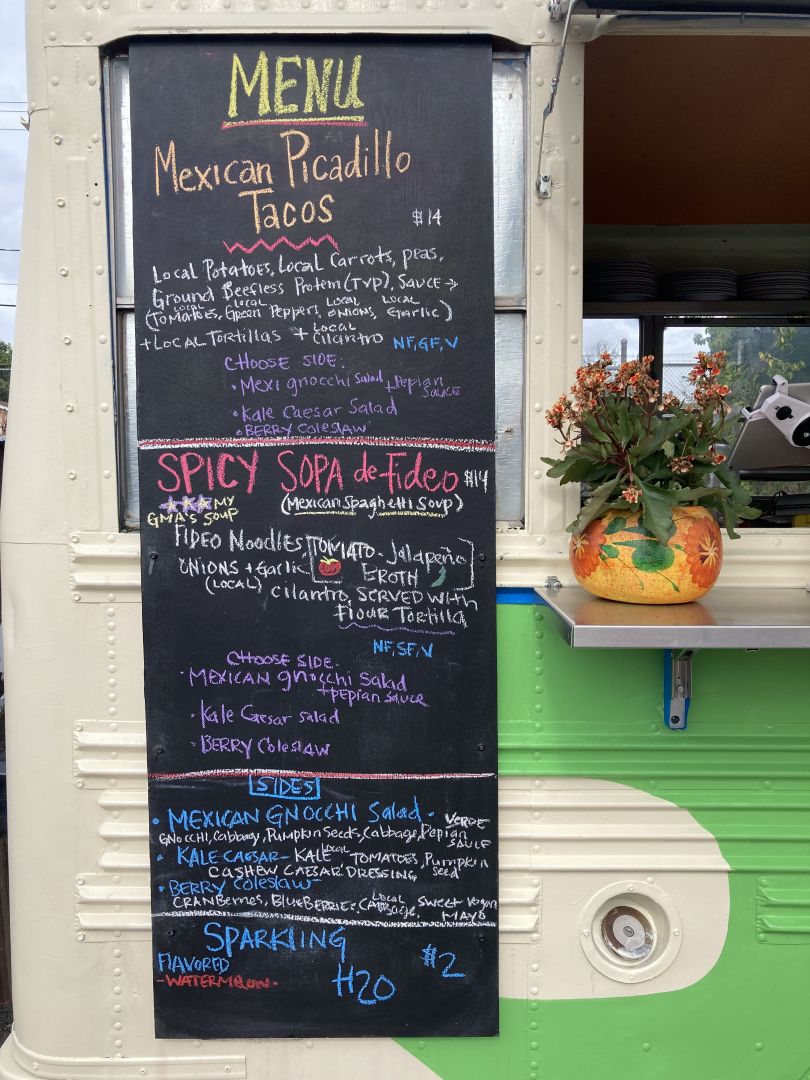 MENU
Mexican Picadillo
Tacos
$14
Local Potatoes, Local Carrots, peas,
Ground Beefless Protein (TVP), Sauce →
LOCAL LOCAL LOCAL LOCAL
(Tomatoes, Green Peppers, onions, Garlic)
+ Local Tortillas + LOCAL Cilantro NF, GF, V
CHOOSE SIDE:
• Mexi gnocchi Salad + Pepian SAUCE
• Kale Caesar Salad
• BERRY Coleslaw
SPICY SOPA de Fideo $14
★★★ MY
GMA'S SOUP
(Mexican Spaghetti Soup)
FIDEO Noodles, TOMATO - Jalapeño
ONIONS + Garlic BROTH
(LOCAL) cilantro, SERVED WITH
Flour Tortilla
NF, SF, V
CHOOSE SIDE-
• MEXICAN gnocchi Salad
+ pepian sauce
• Kale Caesar salad
• BERRY Coleslaw
SIDES
• MEXICAN GNOCCHI Salad - VERDE
GNOCCHI, Cabbage, Pumpkin Seeds, Cabbage, Pepian SAUCE
• KALE CAESAR - KALE LOCAL TOMATOES, Pumpkin Seed
CASHEW CAESAR DRESSING
• BERRY Coleslaw -
CRANBERRIES, BLUEBERRIES, LOCAL CABBAGE, Sweet Vegan
MAYO
SPARKLING
FLAVORED
H2O
$2
-WATERMELON-